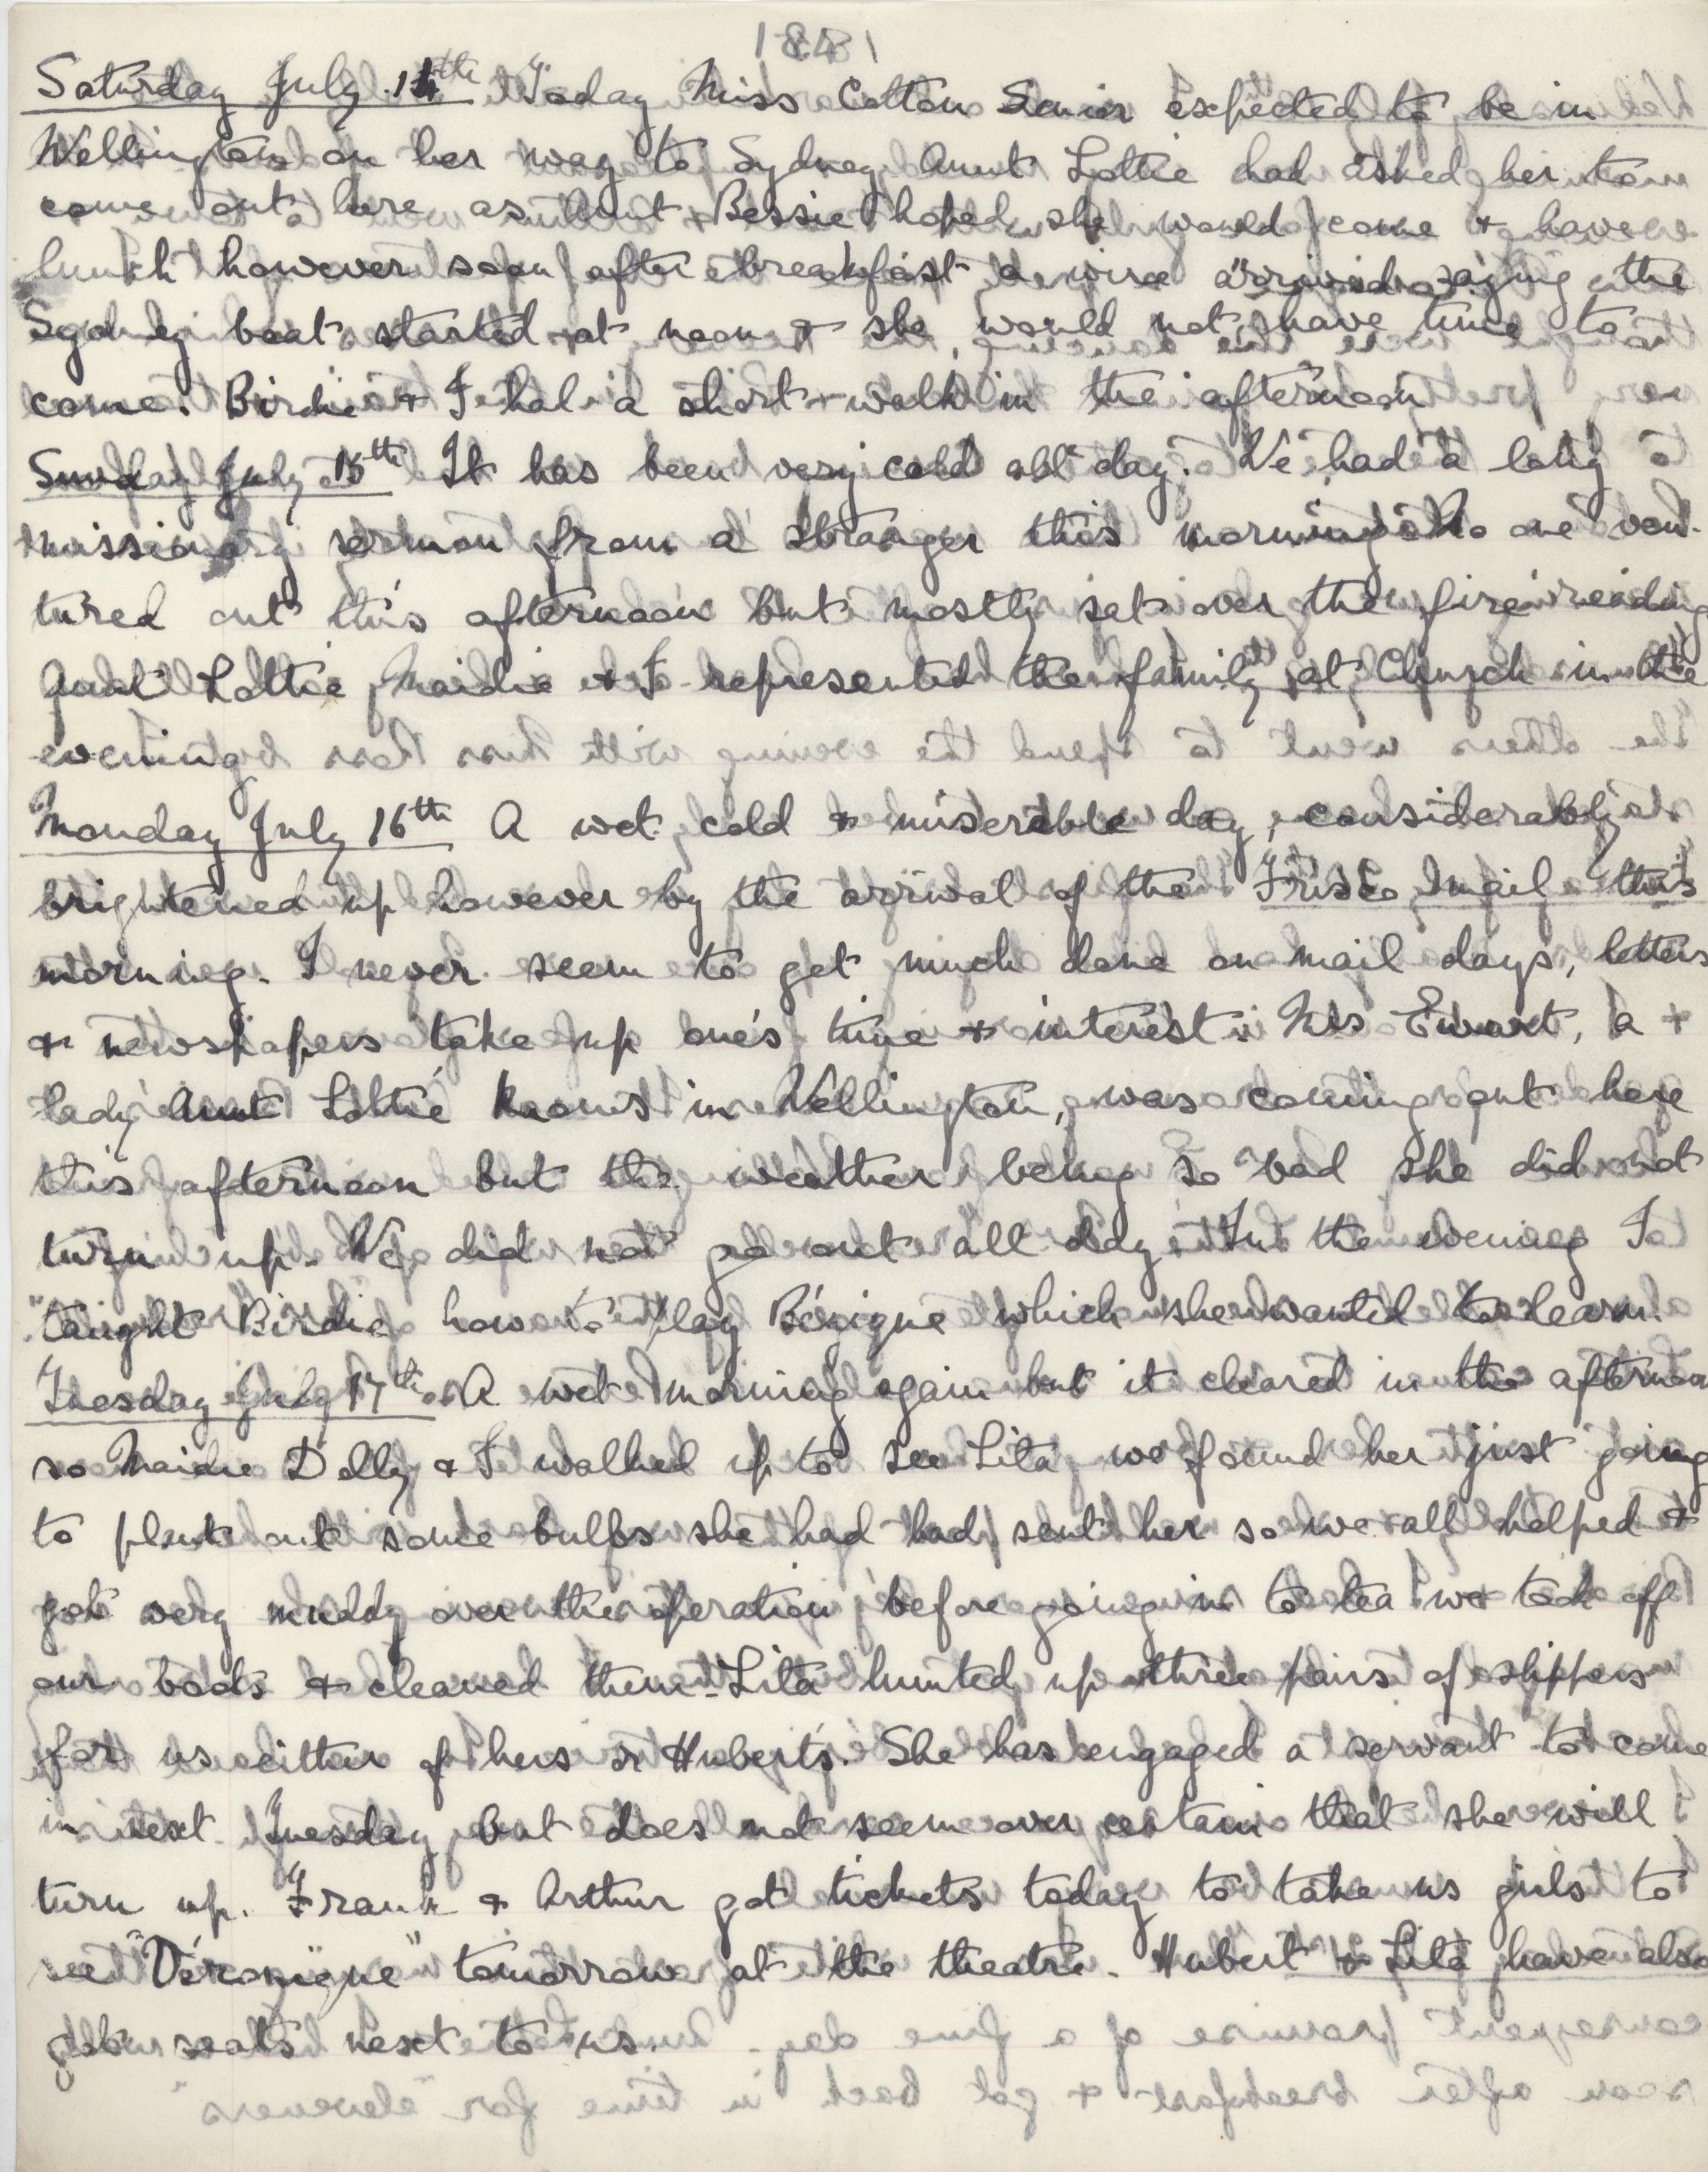 Saturday July 14th Today Miss Cotton Senior expected to be in
Wellington on her way to Sydney Aunt Lottie had asked her to
come out here as Aunt Bessie hoped she would come & have
lunch however soon after breakfast a wire arrived saying the
Sydney boat started at noon & she would not have time to
come. Birdie & I had a short walk in the afternoon
Sunday July 15th It has been very cold all day. We had a long
missionary sermon from a stranger this morning. No one ven-
tured out this afternoon but mostly sat over the fire reading
Aunt Lottie Maidie & I represented the family at Church in the
evening
Monday July 16th A wet cold & miserable day, considerably
brightened up however by the arrival of the Frisco mail this
morning. I never seem to get much done on mail days, letters
& newspapers take up one's time & interest. Mrs Ewart, a
lady Aunt Lottie knows in Wellington, was coming out here
this afternoon but the weather being so bad she did not
turn up. We did not go out all day. In the evening I
taught Birdie how to play Bézique which she wanted to learn.
Tuesday July 17th. A wet morning again but it cleared in the afternoon
so Maidie Dolly & I walked up to see Lita, we found her just going
to plant out some bulbs she had had sent her so we all helped &
got very muddy over the operation, before going in to tea we took off
our boots & cleaned them - Lita hunted up three pairs of slippers
for us either of hers or Hubert's. She has engaged a servant to come
in next Tuesday but does not seem over certain that she will
turn up. Frank & Arthur got tickets today to take us girls to
see "Véronique" tomorrow at the theatre. Hubert & Lita have also
got seats next to us.